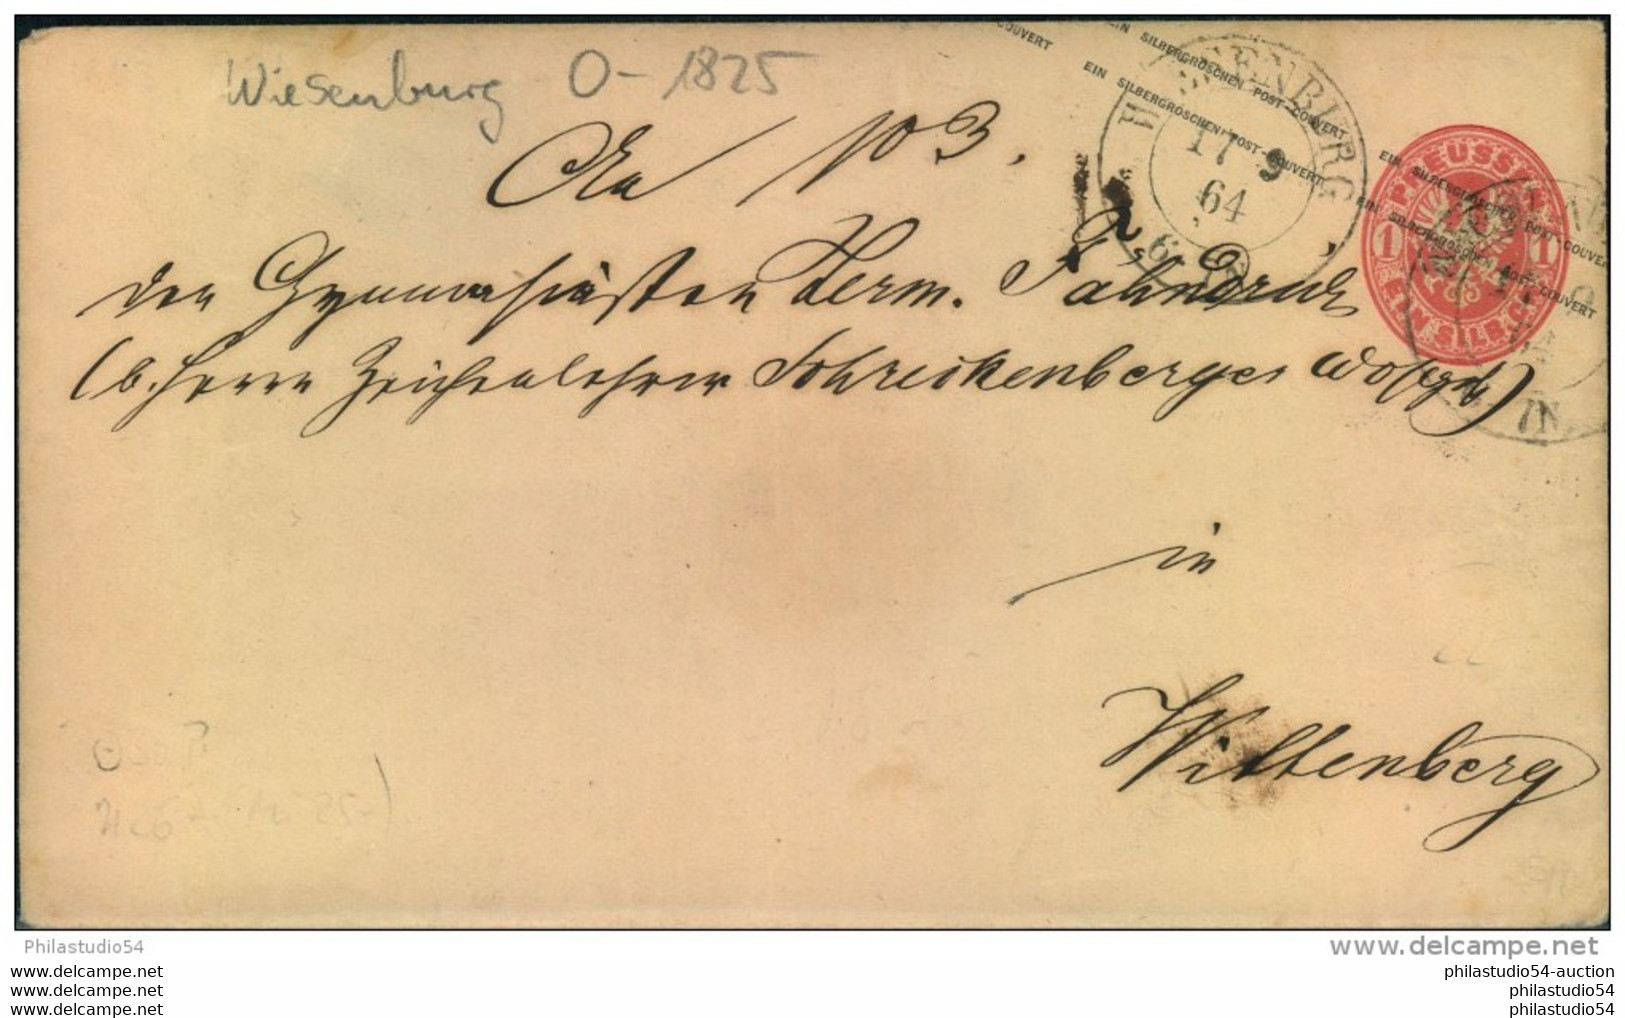 Wiesenburg O-1825
COUVERT
EIN SILBERGROSCHEN POST-COUVERT
EIN SILBERGROSCHEN POST-COUVERT
EIN SILBERGROSCHEN POST-COUVERT
EIN SILBERGROSCHEN POST-COUVERT
17 9
64
PREUSSEN
1 1
EIN SILB. GR.
An
den Gymnasiasten Herm. Fähndrich
(b. Herrn Zeichenlehrer Schreckenberger Wohlgb)
in
Wittenberg
Philastudio54
www.delcampe.net
www.delcampe.net
www.delcampe.net
www.delcampe.net
philastudio54-auction
philastudio54
philastudio54